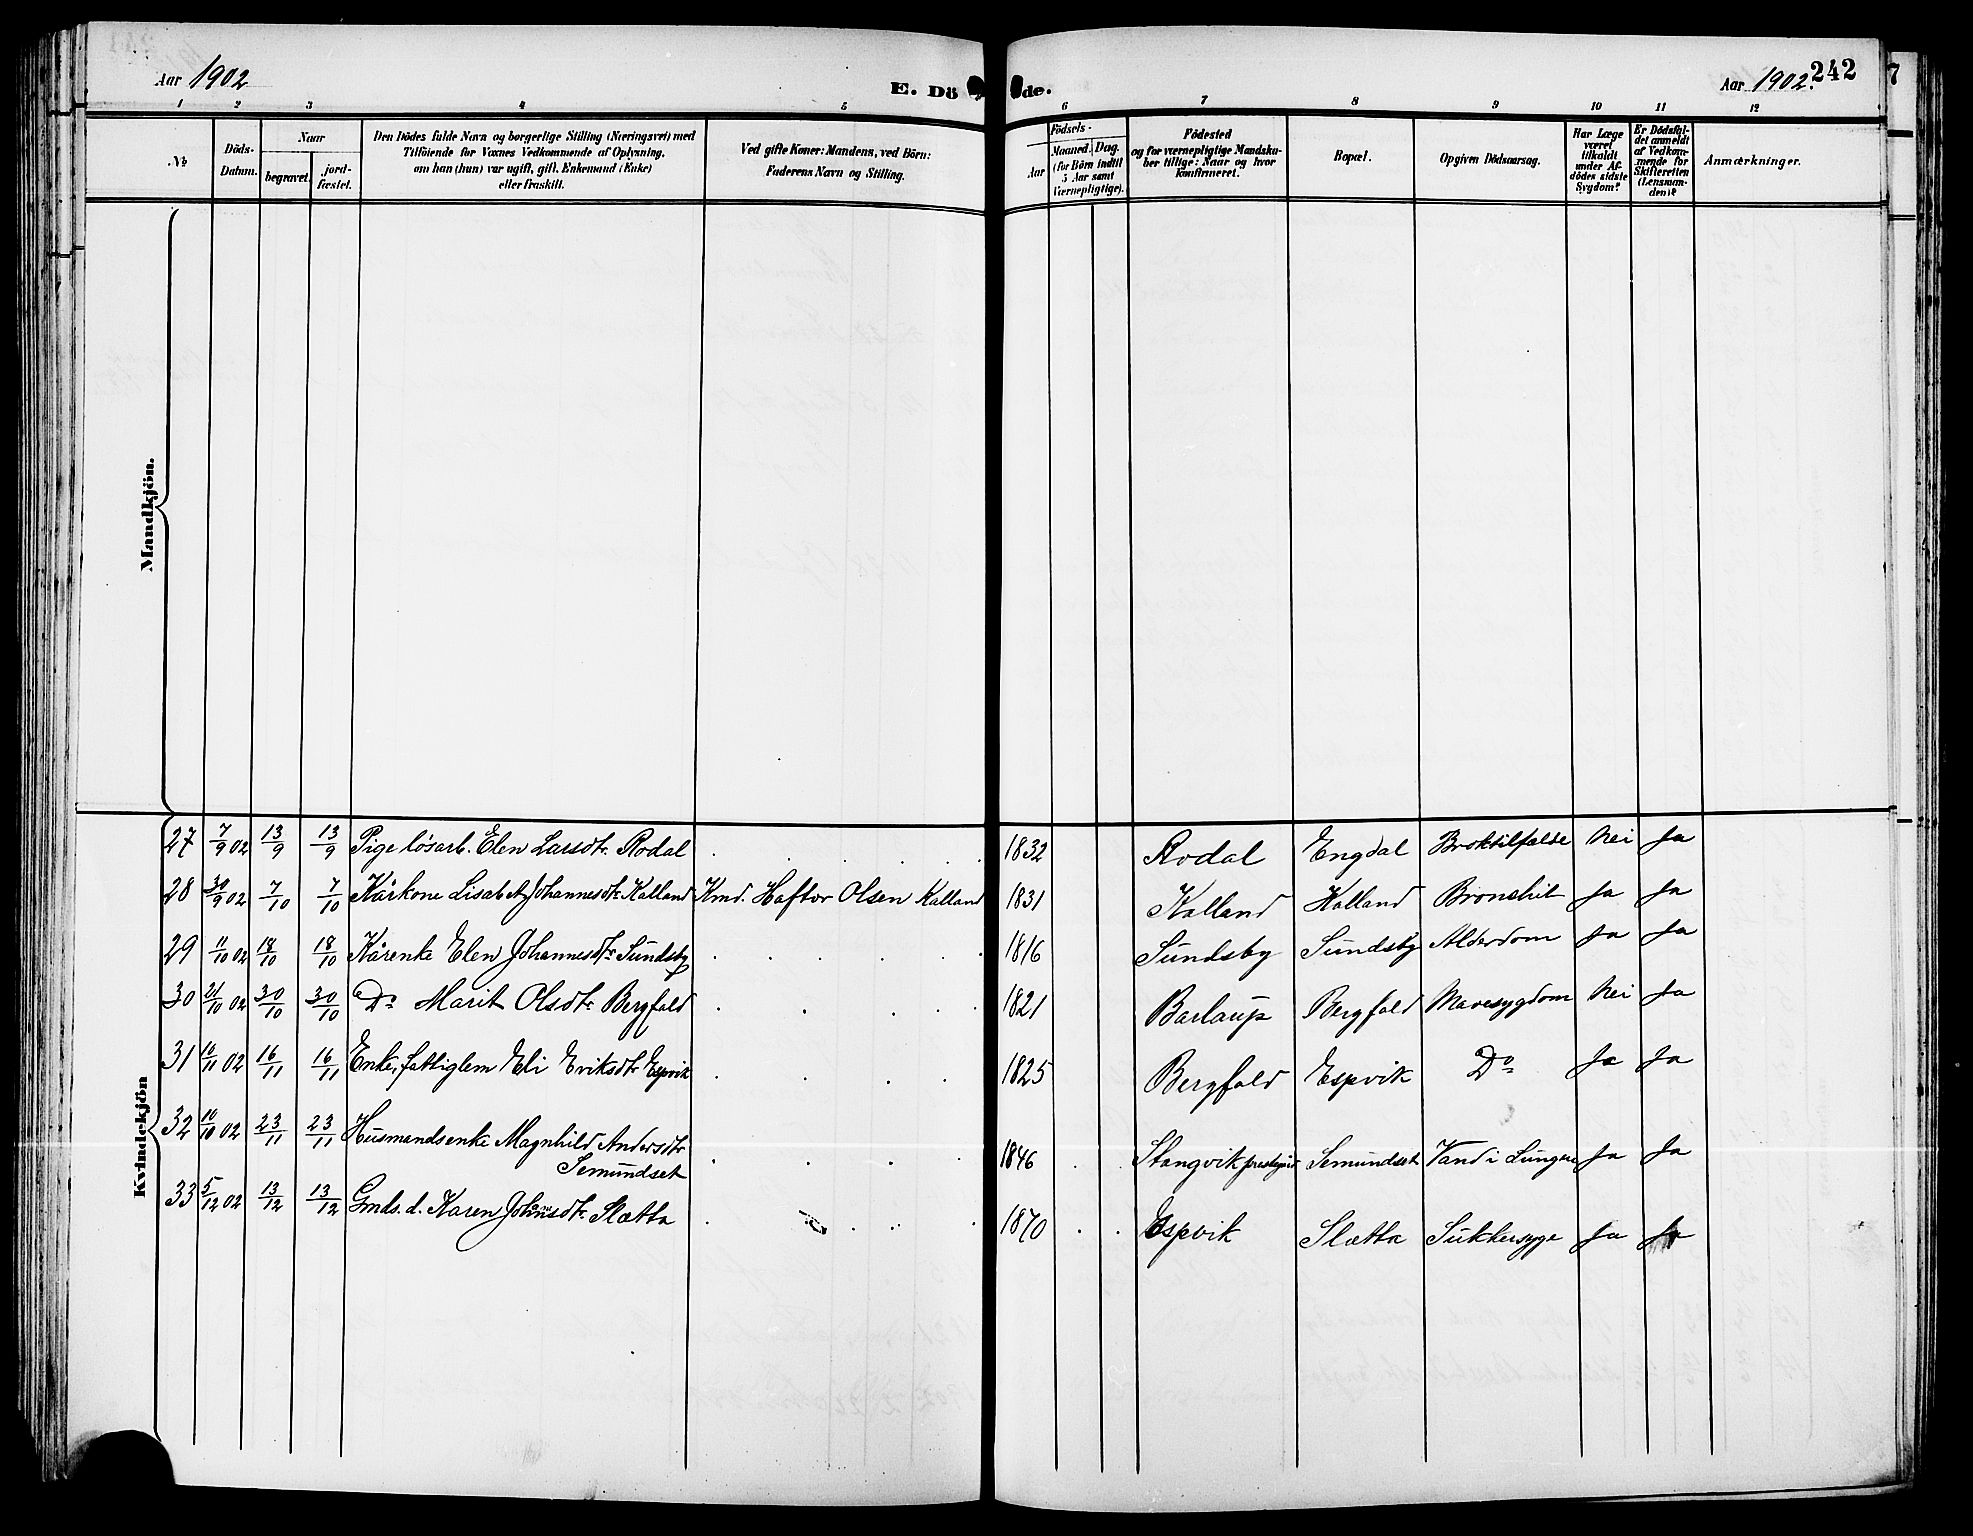 Aar 1902
E. Döde.
Aar 1902.
242
7
1 2 3 4 5 6 7 8 9 10 11 12
No
Döds-
Datum.
Naar
begravet.
jord-
fæstet.
Den Dödes fulde Navn og borgerlige Stilling (Næringsvei) med
Tilföiende for Voxnes Vedkommende af Oplysning,
om han (hun) var ugift, gift, Enkemand (Enke)
eller fraskilt.
Ved gifte Koner: Mandens, ved Börn:
Faderens Navn og Stilling.
Födsels-
Aar
Maaned. Dag.
(for Börn indtil
5 Aar samt
Værnepligtige).
Födested
og for værnepligtige Mandska-
ber tillige: Naar og hvor
konfirmeret.
Bopæl.
Opgiven Dödsaarsag.
Har Læge
været
tilkaldt
under Af-
dödes sidste
Sygdom?
Er Dödsfal-
det anmeldt
af Vedkom-
mende for
Skifteretten
(Lensman-
den)?
Anmærkninger.
Mandkjön.
Kvindekjön
27 7/9 02 13/9 13/9 Pige lösarb. Elen Larsdtr. Rodal 1832 Rodal Engdal Broktilfælde Nei Ja
28 30/9 02 7/10 7/10 Kårkone Lisabet Johannesdtr Kalland Kmd. Haftor Olsen Kalland 1831 Kalland Kalland Bronchit Ja Ja
29 11/10 02 18/10 18/10 Kårenke Elen Johannesdtr Sundsby 1816 Sundsby Sundsby Alderdom Ja Ja
30 21/10 02 30/10 30/10 Do Marit Olsdtr Bergfald 1821 Barlaup Bergfald Mavesygdom Nei Ja
31 10/11 02 16/11 16/11 Enke, fattiglem Eli Eriksdtr Espvik 1825 Bergfald Espvik Do Ja Ja
32 10/10 02 23/11 23/11 Husmandsenke Magnhild Andersdtr
Semundset 1846 Stangvik prestegjd Semundset Vand i Lungene Ja Ja
33 5/12 02 13/12 13/12 Gmds. d. Karen Johnsdtr. Slætta 1870 Espvik Slætta Sukkersyge Ja Ja